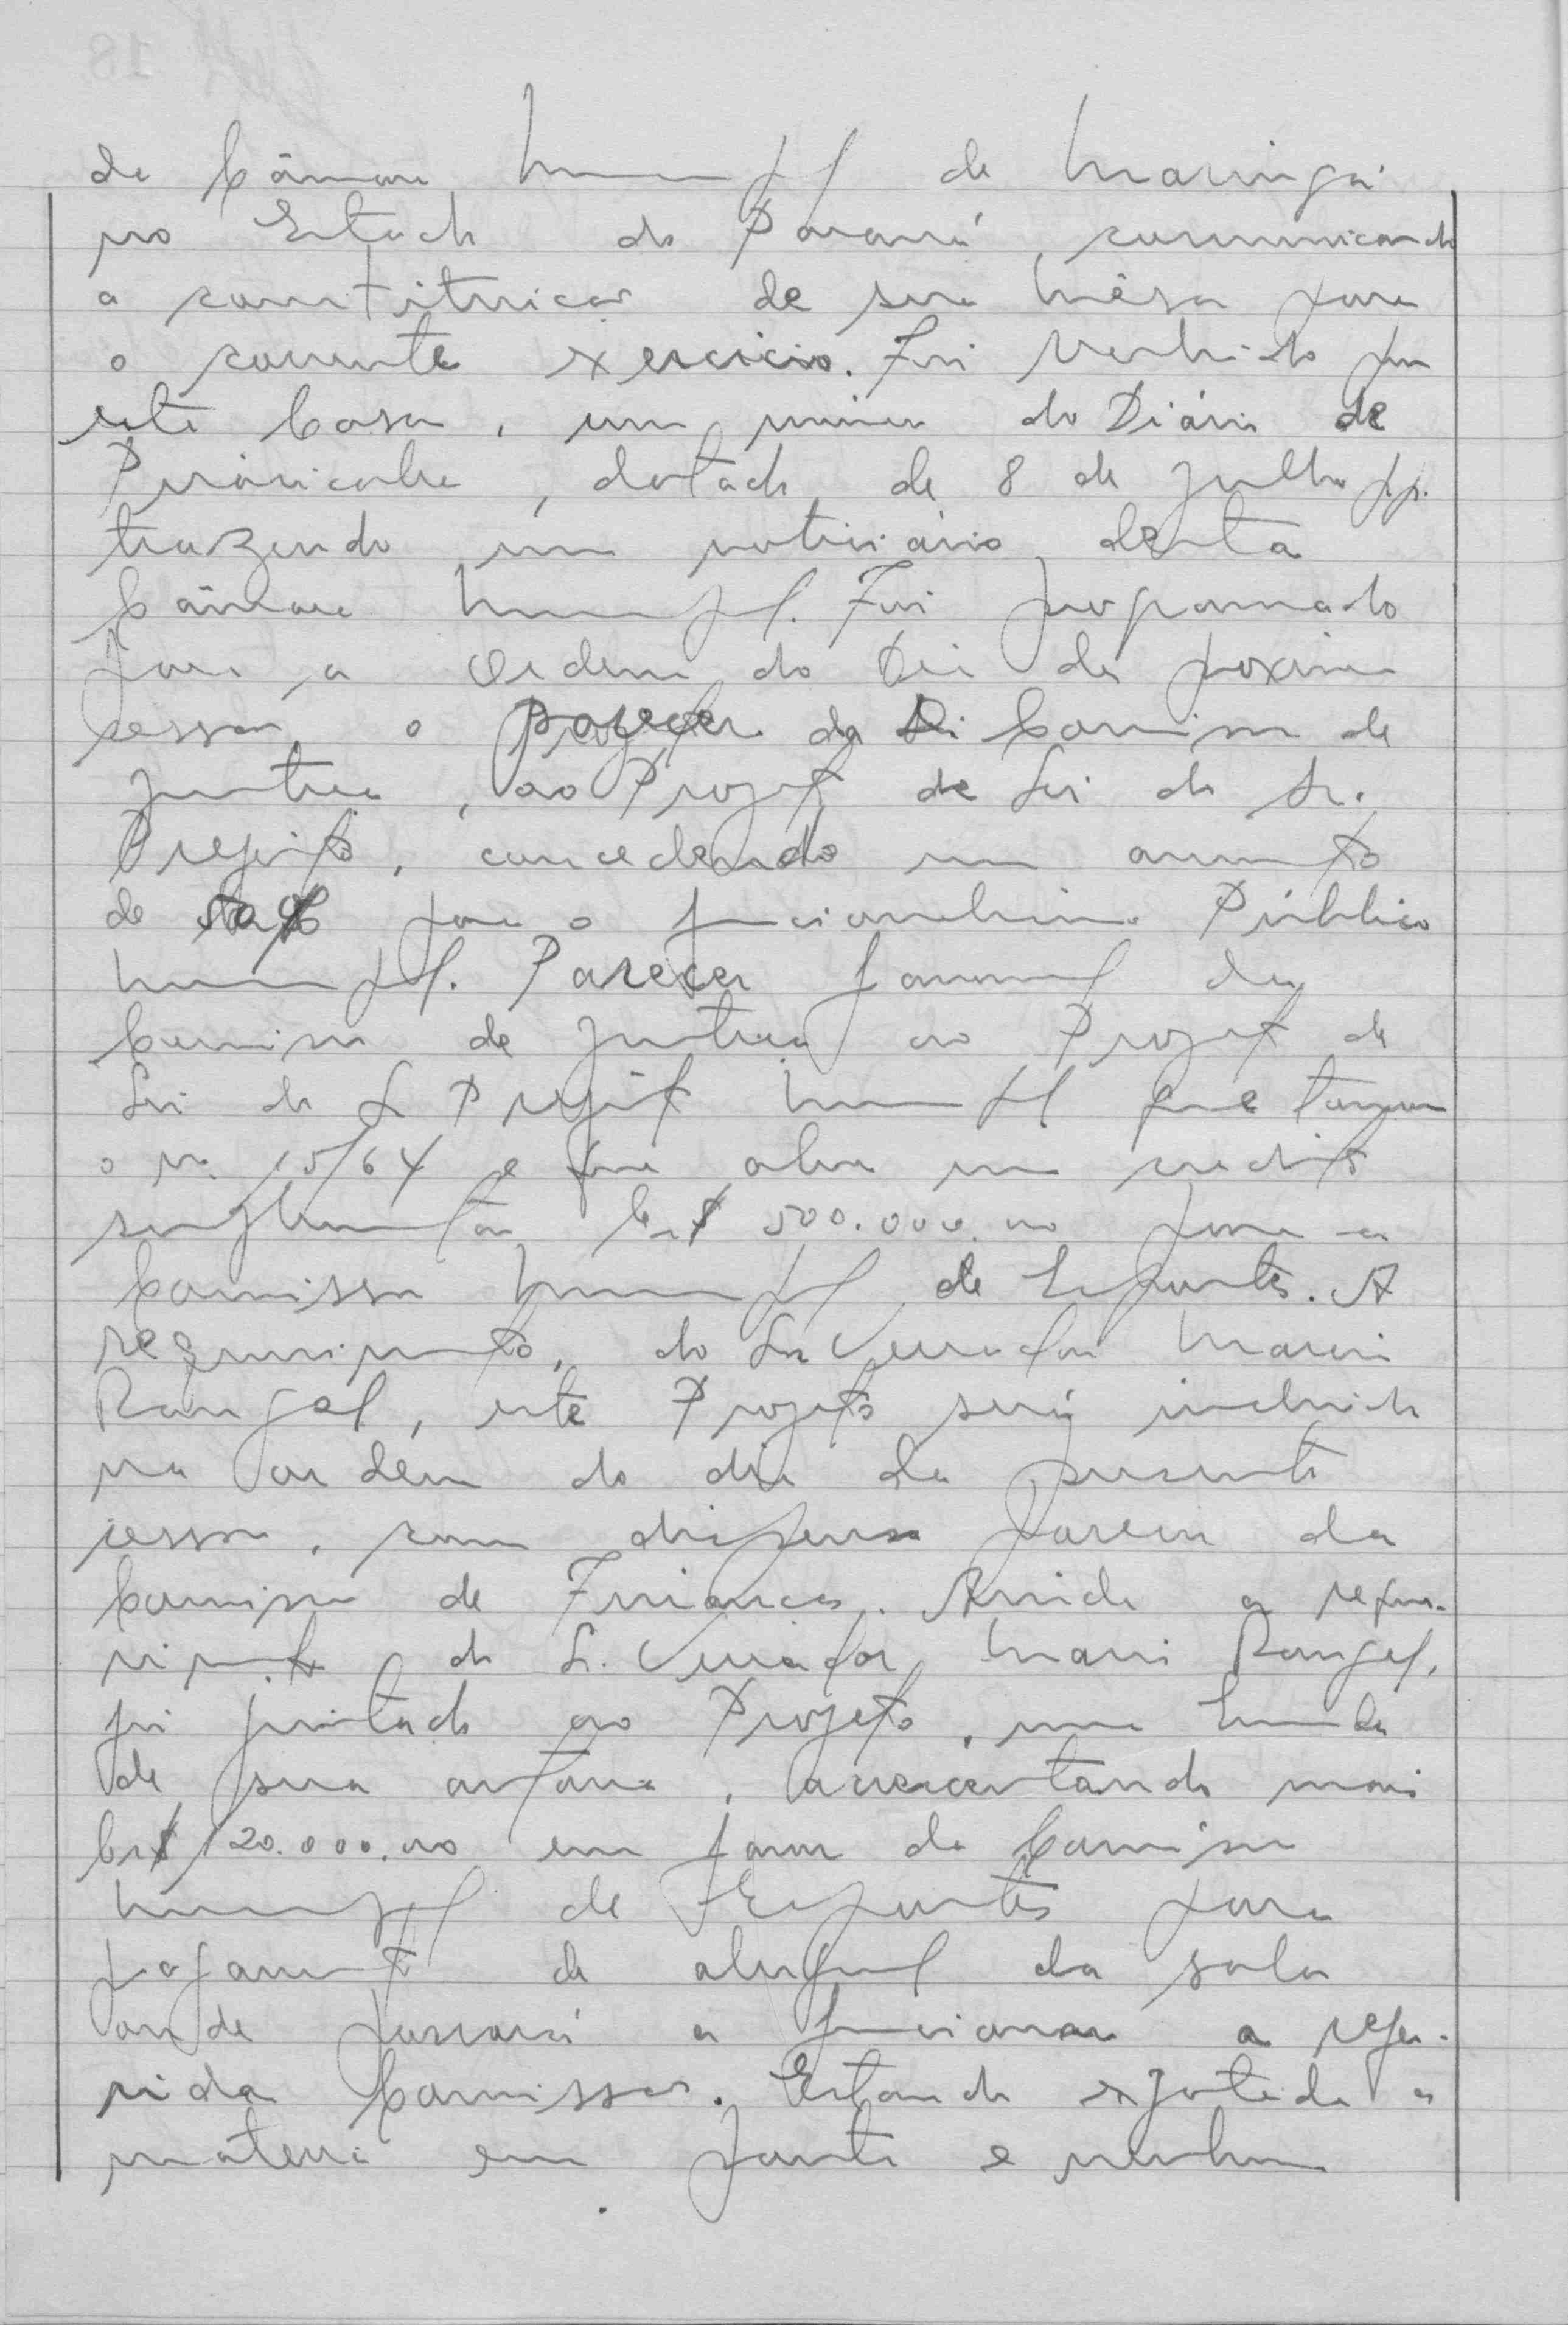 da Câmara Municipal de Maringá
no Estado do Paraná, comunicando
a constituição de sua Mêsa para
o corrente exercicio. Foi recebido por
esta Casa, um número do Diário de
Piracicaba, datado de 8 de Julho p.p.
trazendo um noticiário desta
Câmara Municipal. Foi programado
para a Ordem do Dia da proxima
sessão o parecer da Comissão de
Justiça, ao Projeto de Lei do Sr.
Prefeito, concedendo um aumento
de para o funcionalismo Público
Municipal. Parecer favoravel da
Comissão de Justiça ao Projeto de
Lei do Sr Prefeito Municipal que tomou
o n. 15/64 e que abre um credito
suplementar Cr$ 500.000,00 para a
Comissão Municipal de Esportes. A
requerimento, do Sr. Vereador Mario
Rangel, este Projeto será incluido
na ordem do dia da presente
sessão, com dispensa parecer da
Comissão de Finanças. Ainda a reque-
rimento do Sr. Vereador Mario Rangel,
foi juntado ao Projeto, uma Emenda
de sua autoria, acrescentando mais
Cr$ 120.000,00 em favor da Comissão
Municipal de Esportes para
pagamento de aluguel da sala
onde passará a funcionar a refe-
rida Comissão. Estando exgotada a
materia em pauta e nenhum